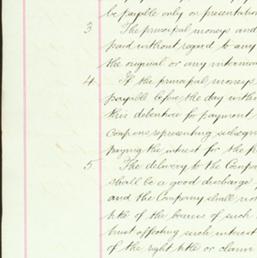 be payable only on presentation
3 The principal moneys and
paid without regard to any
the original or any intermed
4 If the principal moneys
payable before the day within
this debenture for payment
Coupons representing subsequ
paying the interest for the p
5 The delivery to the Compa
shall be a good discharge
and the Company shall not
title of the bearer of such
trust affecting such interest
of the right title or claim